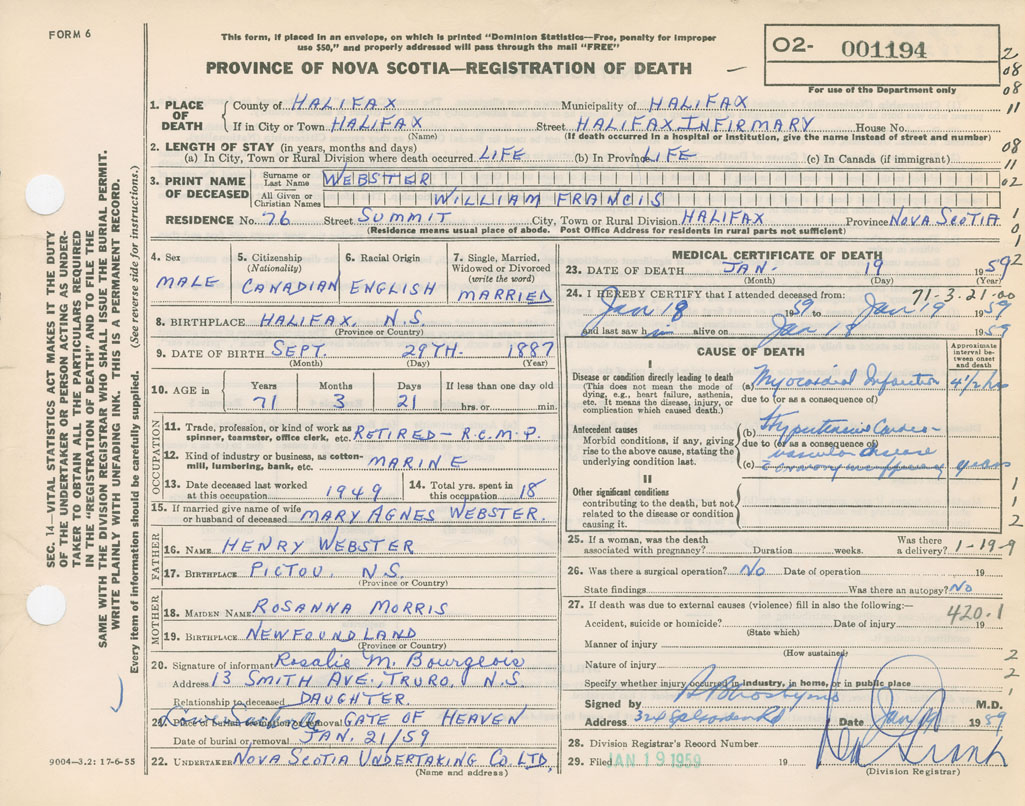 FORM 6
This form, if placed in an envelope, on which is printed "Dominion Statistics—Free, penalty for improper
use $50," and properly addressed will pass through the mail "FREE"
PROVINCE OF NOVA SCOTIA—REGISTRATION OF DEATH
02- 001194
For use of the Department only
2
08
08
11
08
11
02
1
0
1
2
SEC. 14—VITAL STATISTICS ACT MAKES IT THE DUTY
OF THE UNDERTAKER OR PERSON ACTING AS UNDER-
TAKER TO OBTAIN ALL THE PARTICULARS REQUIRED
IN THE "REGISTRATION OF DEATH" AND TO FILE THE
SAME WITH THE DIVISION REGISTRAR WHO SHALL ISSUE THE BURIAL PERMIT.
WRITE PLAINLY WITH UNFADING INK. THIS IS A PERMANENT RECORD.
Every item of information should be carefully supplied. (See reverse side for instructions.)
1. PLACE OF DEATH
County of HALIFAX Municipality of HALIFAX
If in City or Town HALIFAX Street HALIFAX INFIRMARY House No.
(Name) (If death occurred in a hospital or institution, give the name instead of street and number)
2. LENGTH OF STAY (in years, months and days)
(a) In City, Town or Rural Division where death occurred LIFE (b) In Province LIFE (c) In Canada (if immigrant)
3. PRINT NAME OF DECEASED
Surname or Last Name WEBSTER
All Given or Christian Names WILLIAM FRANCIS
RESIDENCE No. 76 Street SUMMIT City, Town or Rural Division HALIFAX Province NOVA SCOTIA
(Residence means usual place of abode. Post Office Address for residents in rural parts not sufficient)
4. Sex
MALE
5. Citizenship
(Nationality)
CANADIAN
6. Racial Origin
ENGLISH
7. Single, Married,
Widowed or Divorced
(write the word)
MARRIED
8. BIRTHPLACE HALIFAX, N.S.
(Province or Country)
9. DATE OF BIRTH SEPT. 29TH. 1887
(Month) (Day) (Year)
10. AGE in
Years Months Days If less than one day old
71 3 21 hrs. or min.
OCCUPATION
11. Trade, profession, or kind of work as
spinner, teamster, office clerk, etc. RETIRED - R.C.M.P.
12. Kind of industry or business, as cotton-
mill, lumbering, bank, etc. MARINE
13. Date deceased last worked
at this occupation 1949
14. Total yrs. spent in
this occupation 18
15. If married give name of wife
or husband of deceased MARY AGNES WEBSTER.
FATHER
16. NAME HENRY WEBSTER
17. BIRTHPLACE PICTOU, N.S.
(Province or Country)
MOTHER
18. MAIDEN NAME ROSANNA MORRIS
19. BIRTHPLACE NEWFOUNDLAND
(Province or Country)
20. Signature of informant Rosalie M. Bourgeois
Address 13 SMITH AVE., TRURO, N.S.
Relationship to deceased DAUGHTER.
21. Place of burial, cremation or removal GATE OF HEAVEN
Date of burial or removal JAN. 21/59
22. UNDERTAKER NOVA SCOTIA UNDERTAKING CO. LTD.
(Name and address)
9004—3.2: 17-6-55
MEDICAL CERTIFICATE OF DEATH
23. DATE OF DEATH JAN. 19 1959
(Month) (Day) (Year)
71-3-21-00
24. I HEREBY CERTIFY that I attended deceased from:
Jan 18 1959 to Jan 19 1959
and last saw him alive on Jan 18 1959
CAUSE OF DEATH
Approximate
interval be-
tween onset
and death
I
Disease or condition directly leading to death
(This does not mean the mode of
dying, e.g., heart failure, asthenia,
etc. It means the disease, injury, or
complication which caused death.)
(a) Myocardial Infarction 4½ hrs
due to (or as a consequence of)
Antecedent causes
Morbid conditions, if any, giving
rise to the above cause, stating the
underlying condition last.
(b) Hypertensive Cardio-
due to (or as a consequence of)
vascular disease
(c) years
II
Other significant conditions
contributing to the death, but not
related to the disease or condition
causing it.
1
1
2
25. If a woman, was the death
associated with pregnancy? Duration weeks. Was there
a delivery? 1-19-9
26. Was there a surgical operation? No Date of operation 19
State findings Was there an autopsy? No
27. If death was due to external causes (violence) fill in also the following:—
420.1
Accident, suicide or homicide? Date of injury 19
(State which)
Manner of injury
(How sustained)
2
Nature of injury
2
Specify whether injury occurred in industry, in home, or in public place
1
Signed by M.D.
Address Date Jan 1989
28. Division Registrar's Record Number
29. Filed JAN 19 1959 19
(Division Registrar)